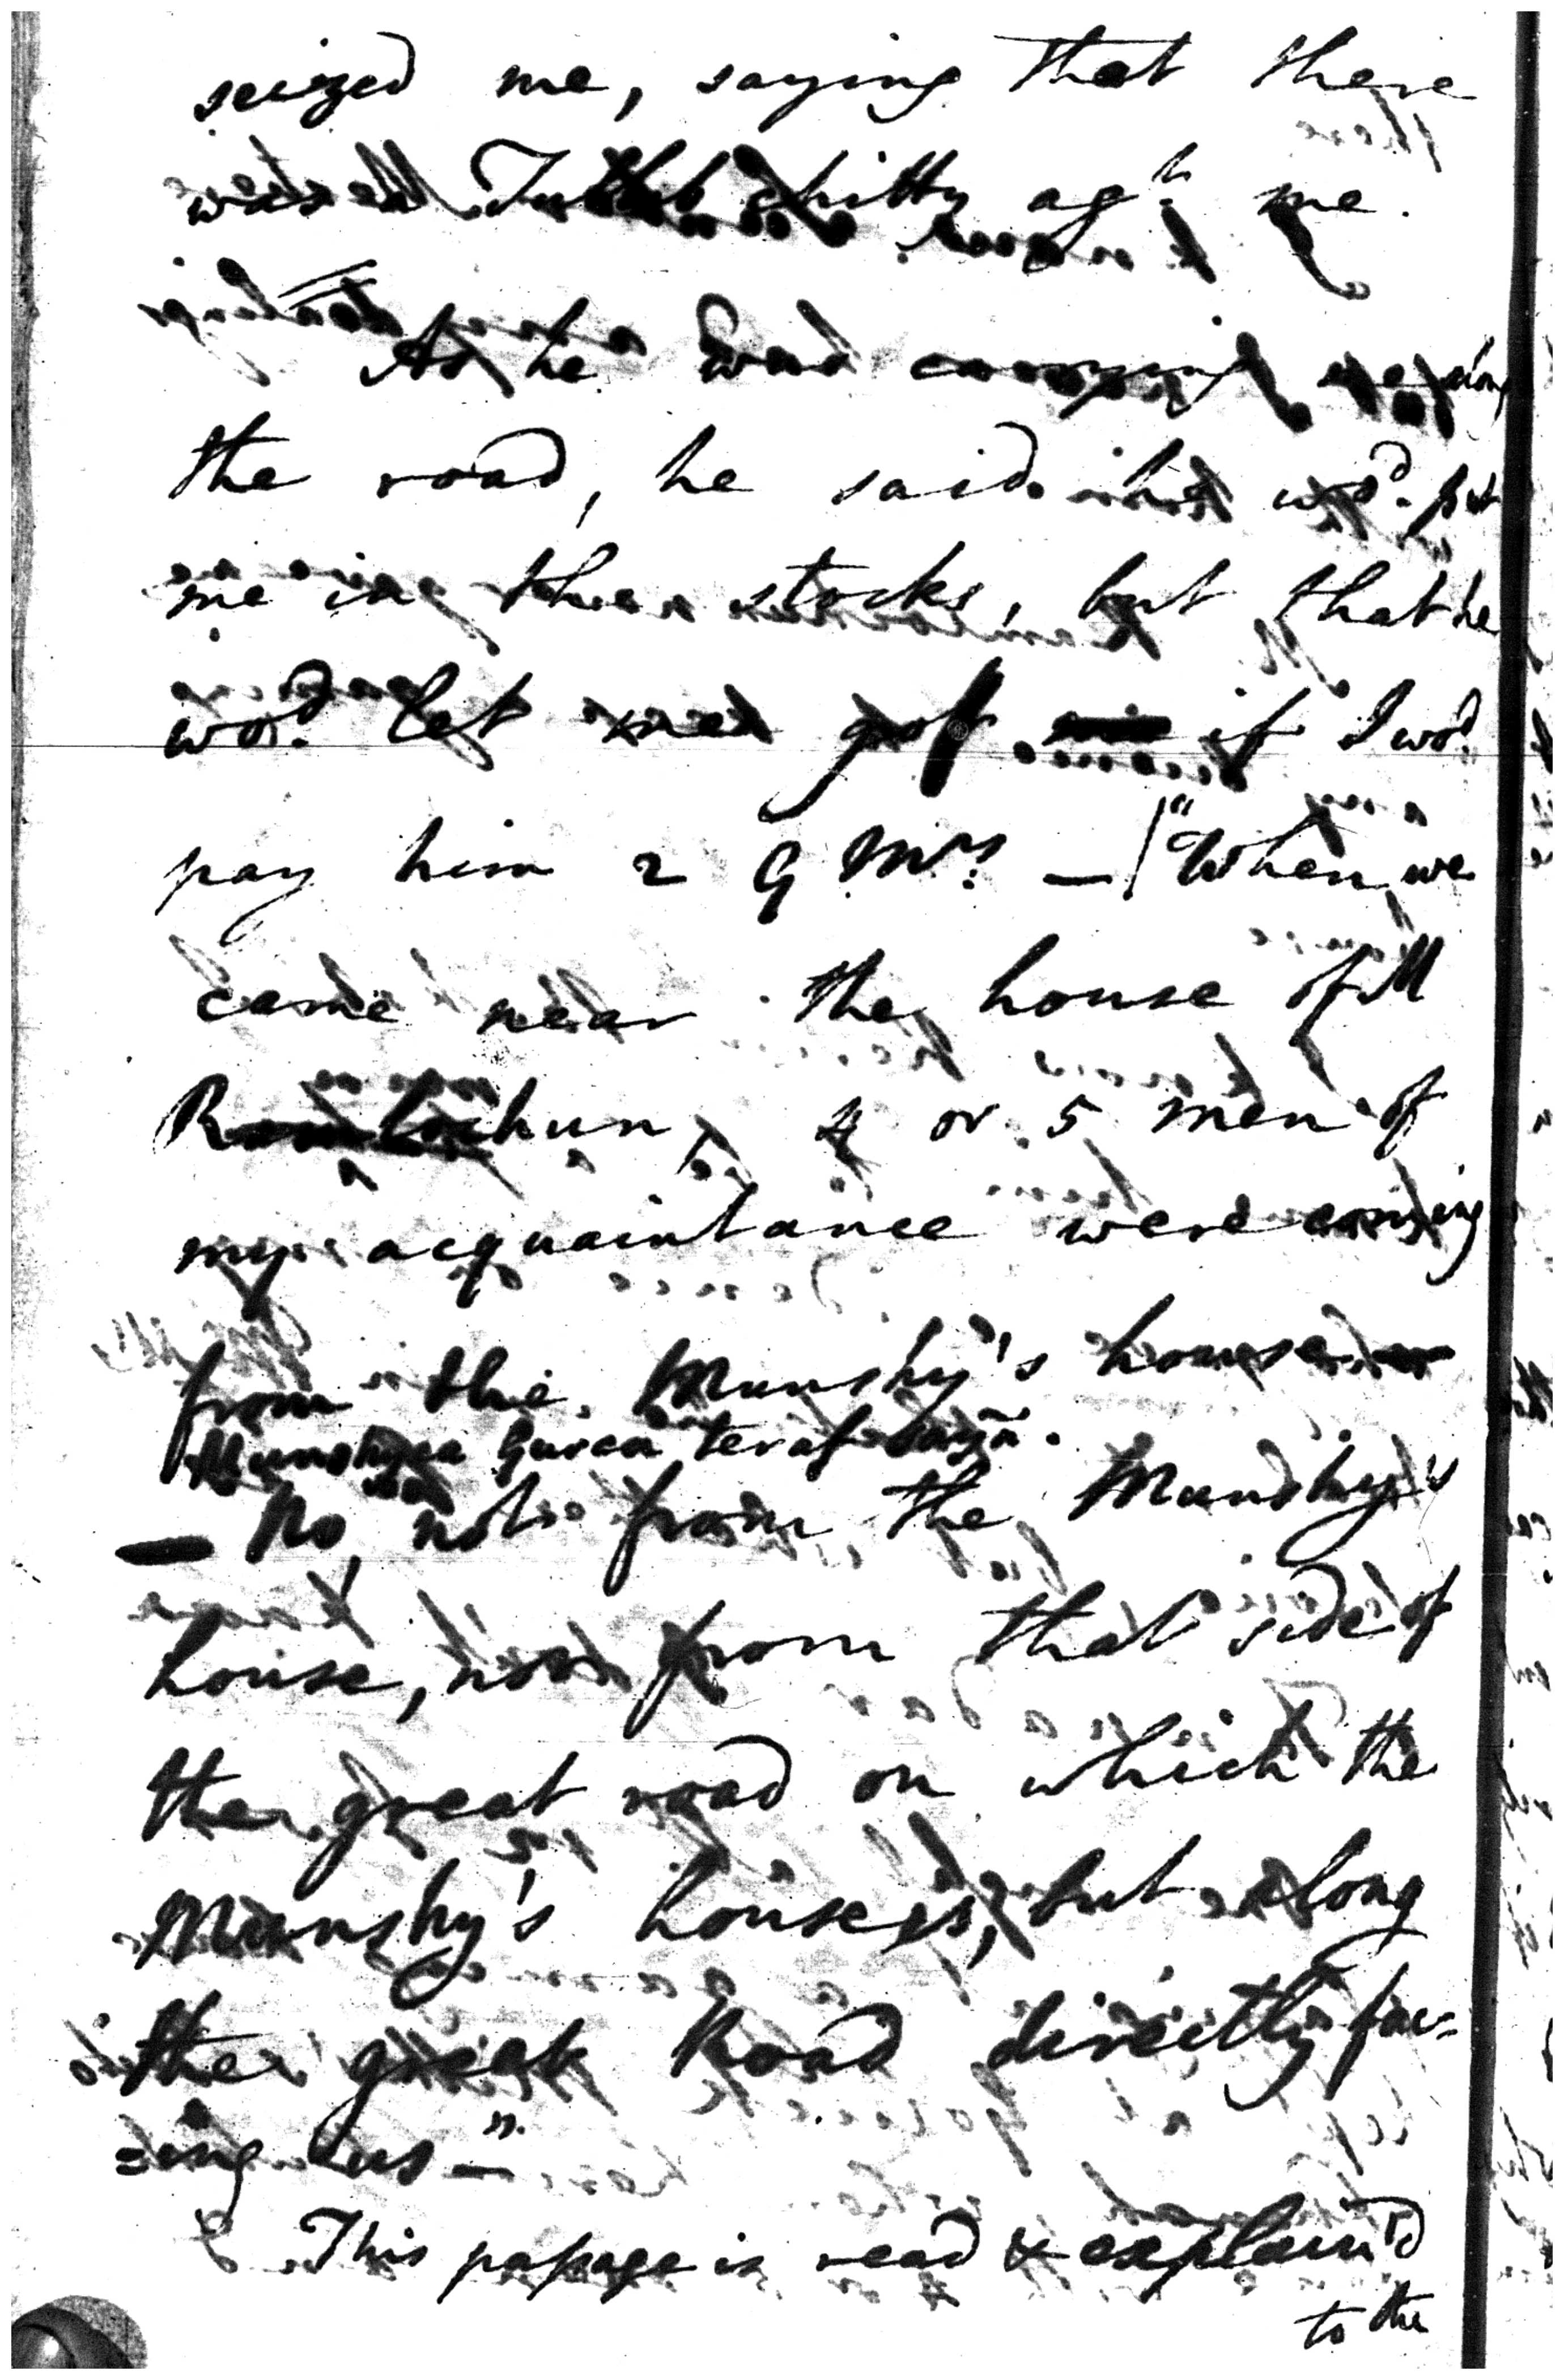 seized me, saying that there
was a Tullub chitty ag.t me.
As he was carrying me along
the road, he said he wo.d put
me in the stocks, but that he
wo.d let me go if I wo.d
pay him 2 G Mrs — "When we
came near the house of M
Ramlochun, 4 or 5 men of
my acquaintance were coming
from the Munshy's house
— No, not from the Munshy's
house, nor from that side of
the great road on which the
Munshy's house is, but along
the great Road directly fac=
=ing us —"
This passage is read & explain'd
to the